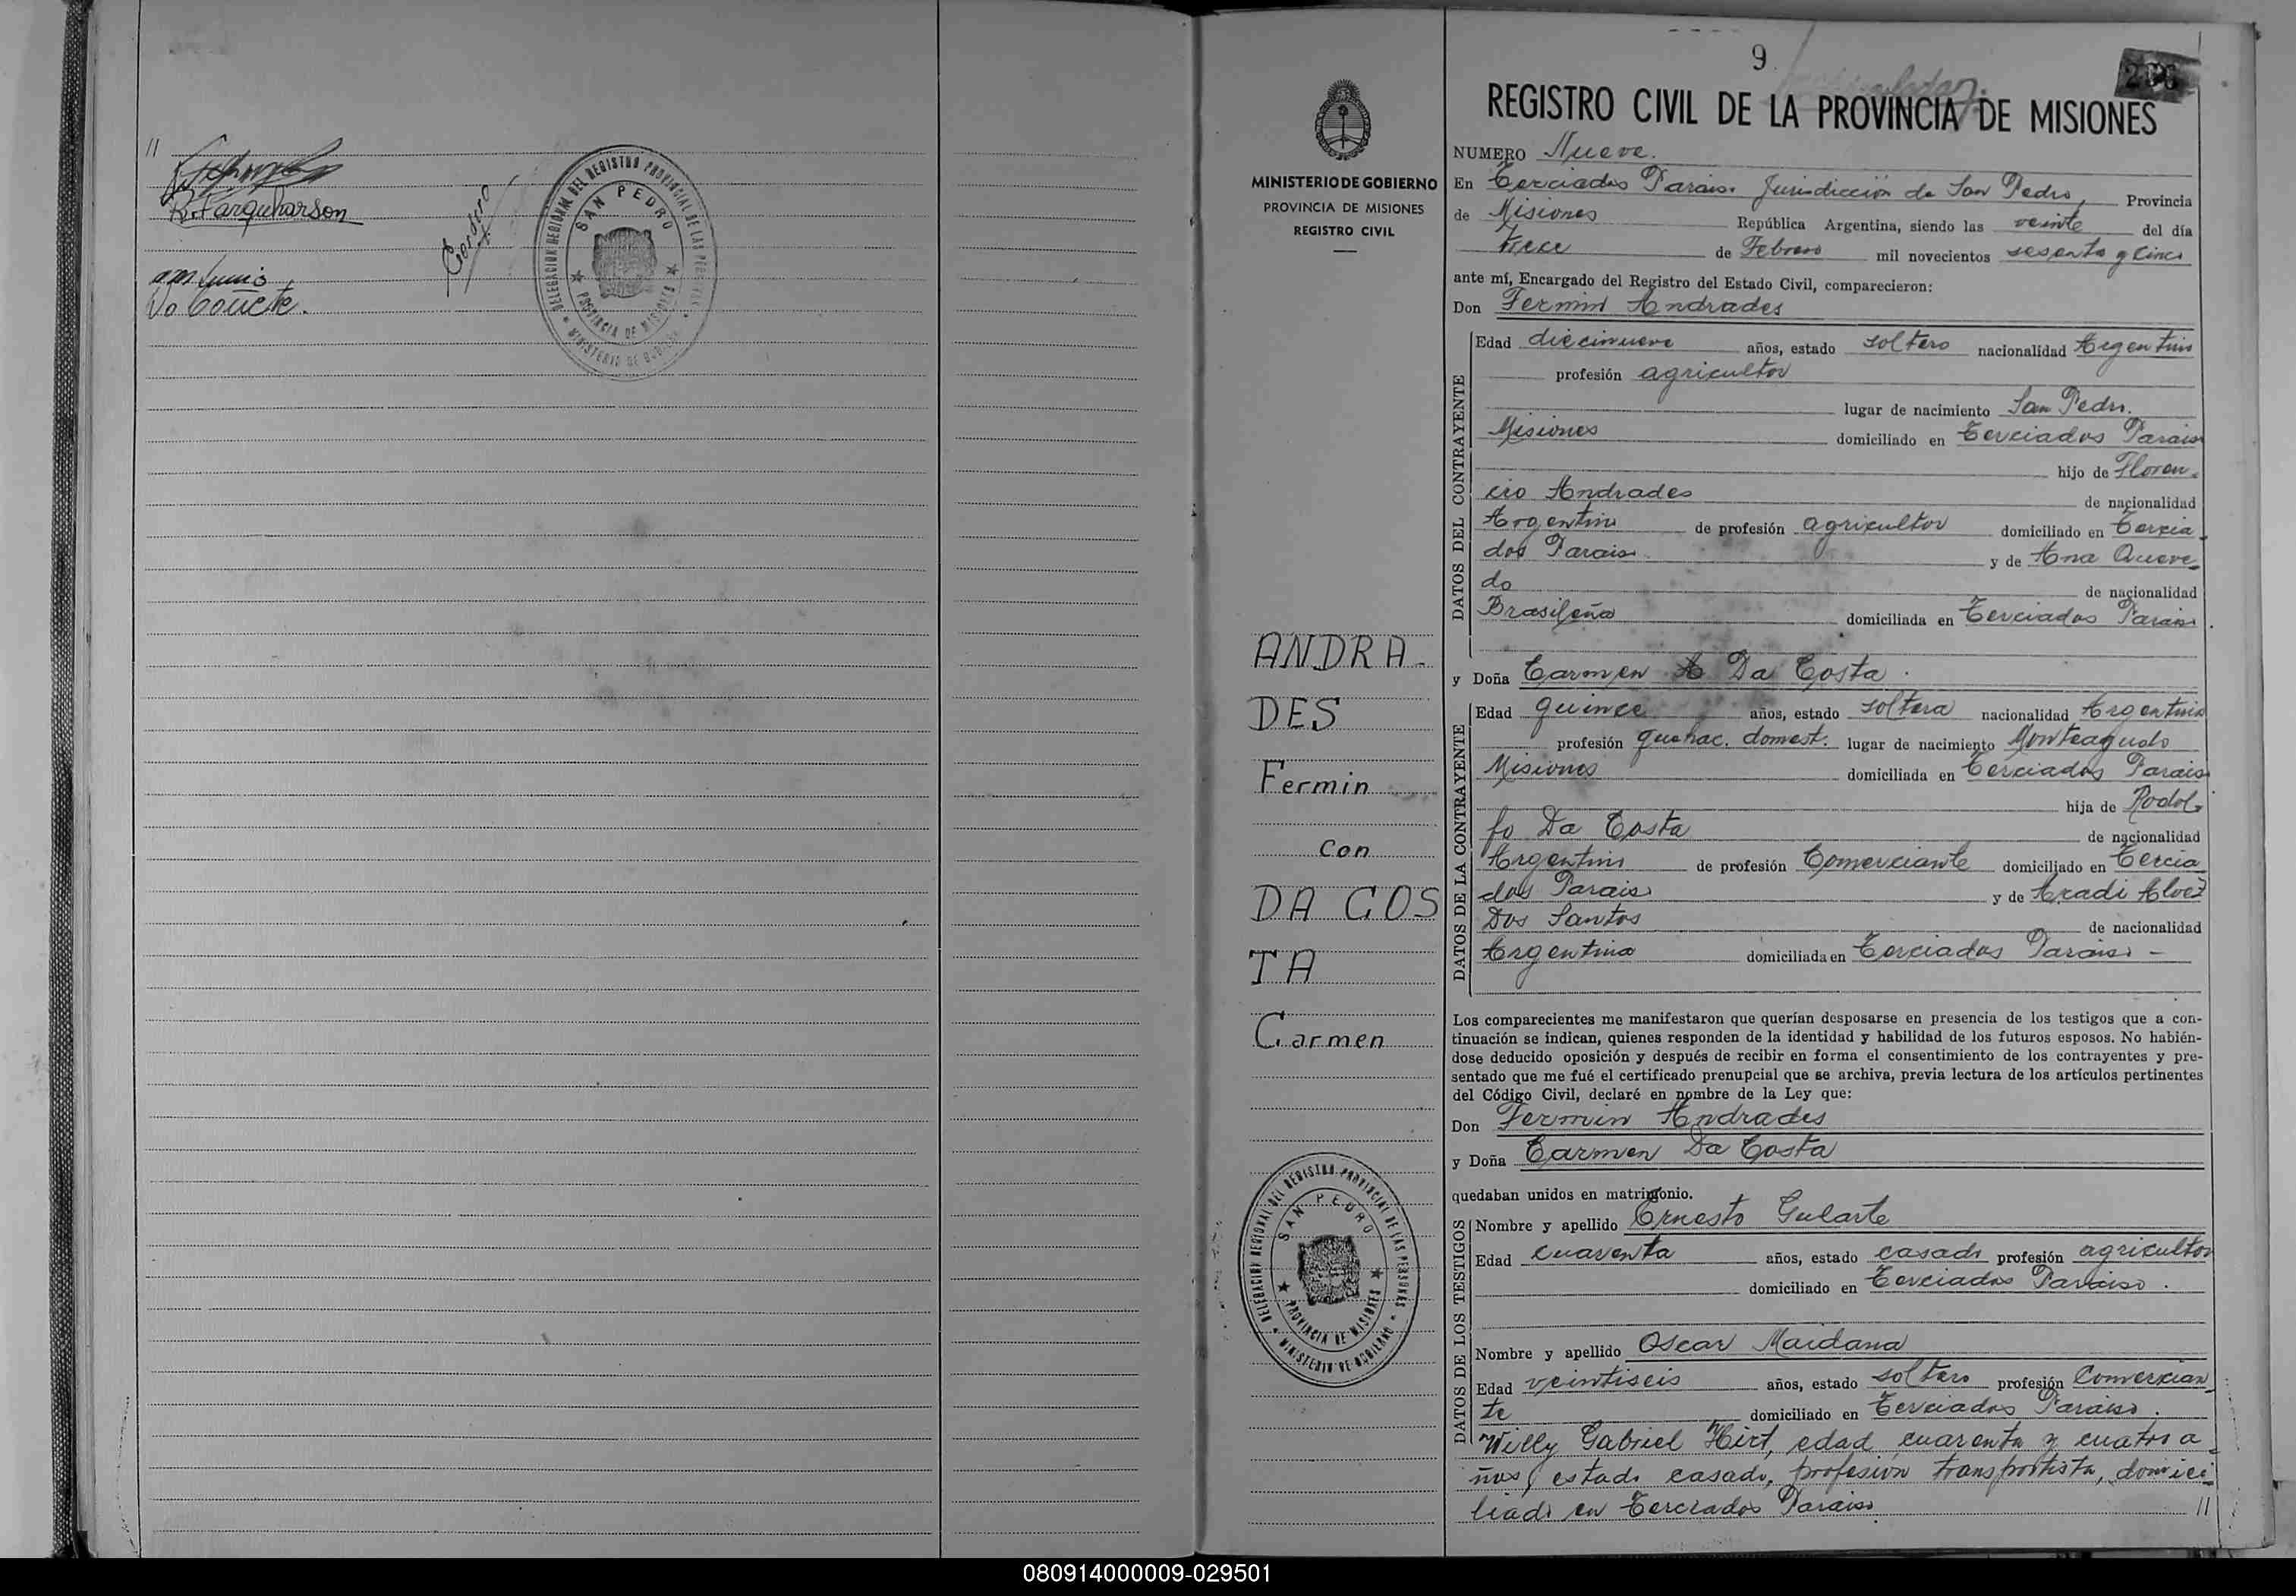 //
R. Farquharson
DELEGACION REGIONAL DEL REGISTRO PROVINCIAL DE LAS PERSONAS
SAN PEDRO
PROVINCIA DE MISIONES
MINISTERIO DE GOBIERNO
9
REGISTRO CIVIL DE LA PROVINCIA DE MISIONES
MINISTERIO DE GOBIERNO
PROVINCIA DE MISIONES
REGISTRO CIVIL
NUMERO Nueve.
En Terciados Paraiso Jurisdicción de San Pedro, Provincia
de Misiones República Argentina, siendo las veinte del día
trece de Febrero mil novecientos sesenta y cinco
ante mí, Encargado del Registro del Estado Civil, comparecieron:
Don Fermin Andrades
DATOS DEL CONTRAYENTE
Edad diecinueve años, estado soltero nacionalidad Argentino
profesión agricultor
lugar de nacimiento San Pedro.
Misiones domiciliado en Terciados Paraiso
hijo de Floren-
cio Andrades de nacionalidad
Argentino de profesión agricultor domiciliado en Tercia-
dos Paraiso y de Ana Queve-
do de nacionalidad
Brasileña domiciliada en Terciados Paraiso.
y Doña Carmen A Da Costa.
DATOS DE LA CONTRAYENTE
Edad quince años, estado soltera nacionalidad Argentina
profesión quehac. domest. lugar de nacimiento Monteagudo
Misiones domiciliada en Terciados Paraiso
hija de Rodol-
fo Da Costa de nacionalidad
Argentino de profesión Comerciante domiciliado en Tercia
dos Paraiso y de Aradi Alvez
Dos Santos de nacionalidad
Argentina domiciliada en Terciados Paraiso -
ANDRA-
DES
Fermin
con
DA COS
TA
Carmen
Los comparecientes me manifestaron que querían desposarse en presencia de los testigos que a con-
tinuación se indican, quienes responden de la identidad y habilidad de los futuros esposos. No habién-
dose deducido oposición y después de recibir en forma el consentimiento de los contrayentes y pre-
sentado que me fué el certificado prenupcial que se archiva, previa lectura de los artículos pertinentes
del Código Civil, declaré en nombre de la Ley que:
Don Fermin Andrades
y Doña Carmen Da Costa
quedaban unidos en matrimonio.
DATOS DE LOS TESTIGOS
Nombre y apellido Ernesto Gularte
Edad cuarenta años, estado casado profesión agricultor
domiciliado en Terciados Paraiso.
Nombre y apellido Oscar Maidana
Edad veintiseis años, estado soltero profesión Comercian-
te domiciliado en Terciados Paraiso.
Willy Gabriel Hirt, edad cuarenta y cuatro a-
ños, estado casado, profesión transportista, domici-
liado en Terciados Paraiso //
DELEGACION REGIONAL DEL REGISTRO PROVINCIAL DE LAS PERSONAS
SAN PEDRO
PROVINCIA DE MISIONES
MINISTERIO DE GOBIERNO
080914000009-029501